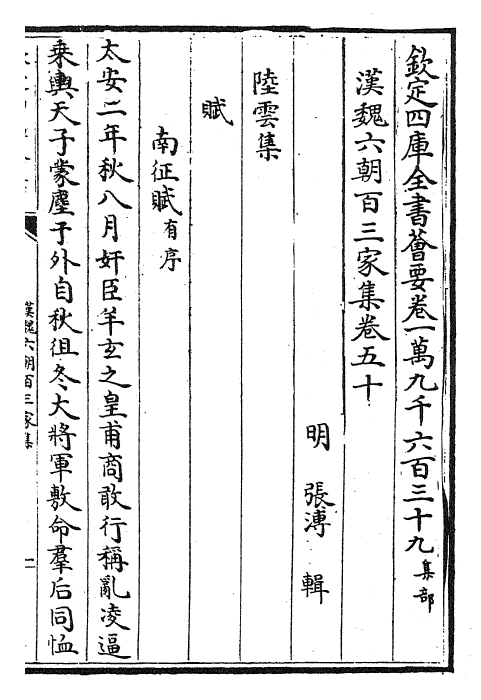 欽定四庫全書薈要卷一萬九千六百三十九集部
漢魏六朝百三家集卷五十
明 張溥 輯
陸雲集
賦
南征賦有序
太安二年秋八月奸臣羊玄之皇甫商敢行稱亂凌逼
乘輿天子蒙塵于外自秋徂冬大將軍敷命羣后同恤
漢魏六朝百三家集
一